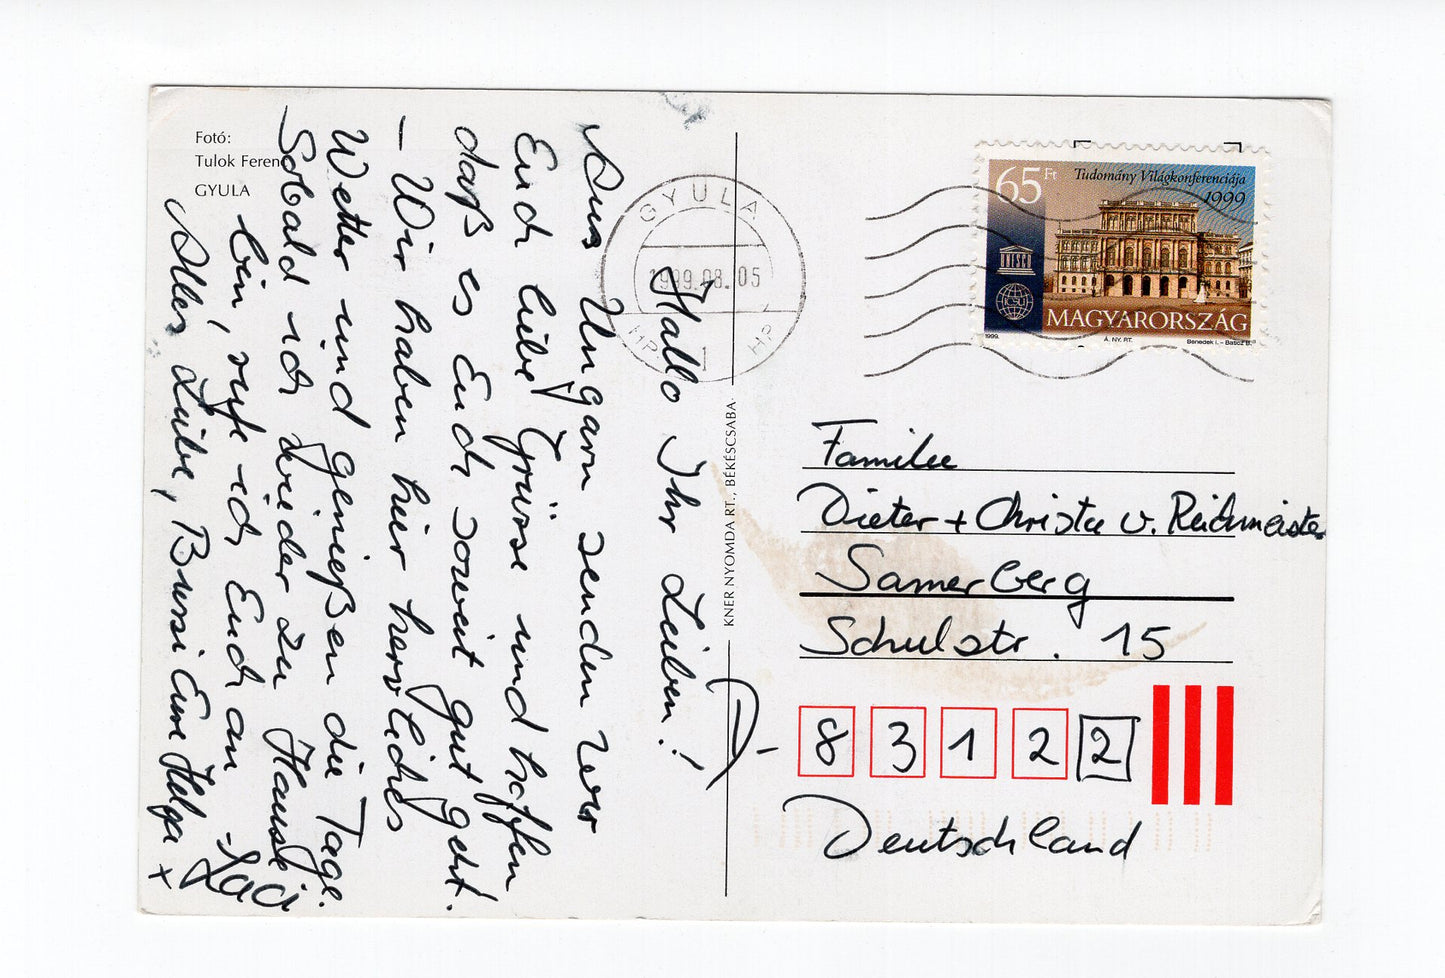 Fotó:
Tulok Ferenc
GYULA
Hallo Ihr Lieben!
Aus Ungarn senden wir
Euch liebe Grüsse und hoffen
daß es Euch soweit gut geht.
– Wir haben hier herrliches
Wetter und genießen die Tage.
Sobald ich wieder zu Hause
bin, rufe ich Euch an
Alles Liebe, Bussi Eure Helga +
Laci
GYULA
1999.08.05
HP 1 HP
KNER NYOMDA RT., BÉKÉSCSABA
65 Ft
Tudomány Világkonferenciája
1999
UNESCO
ICSU
MAGYARORSZÁG
1999. Á. NY. RT. Benedek I. – Baticz B.
Familie
Dieter + Christa v. Reichmeister
Samerberg
Schulstr. 15
D- 8 3 1 2 2
Deutschland